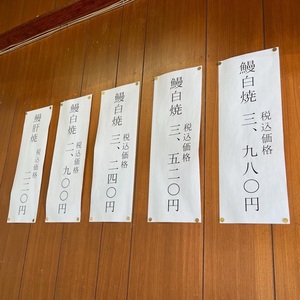 鰻白焼 税込価格 三、九八〇円
鰻白焼 税込価格 三、五二〇円
鰻白焼 税込価格 三、二四〇円
鰻白焼 税込価格 二、九〇〇円
鰻肝焼 税込価格 二二〇円